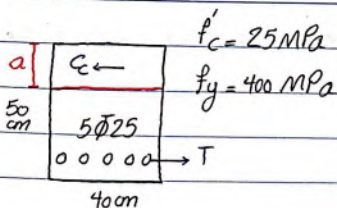 f'c = 25 MPa
a
Cc ←
fy = 400 MPa
50
cm
5Φ25
→ T
40 cm